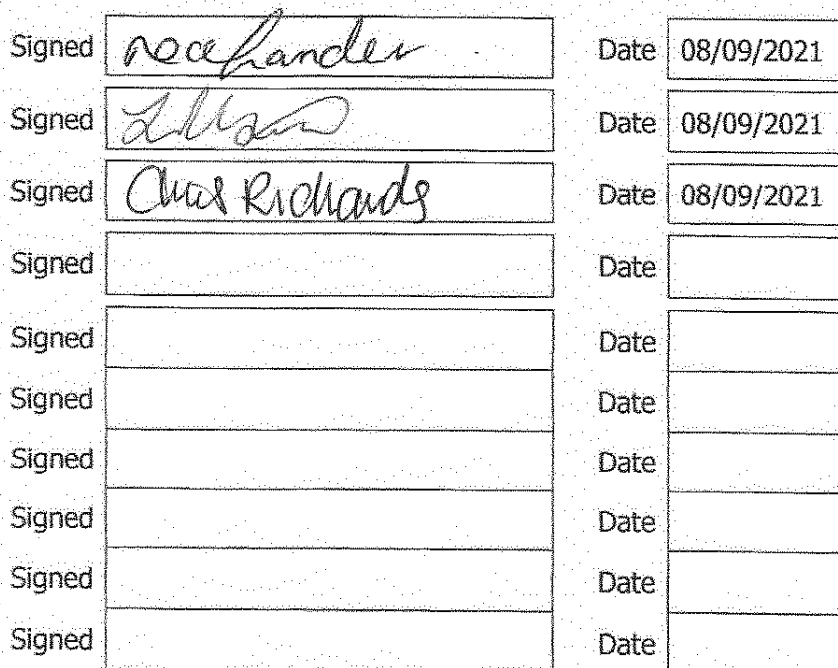 Signed Date 08/09/2021
Signed Date 08/09/2021
Signed Richards Date 08/09/2021
Signed Date
Signed Date
Signed Date
Signed Date
Signed Date
Signed Date
Signed Date